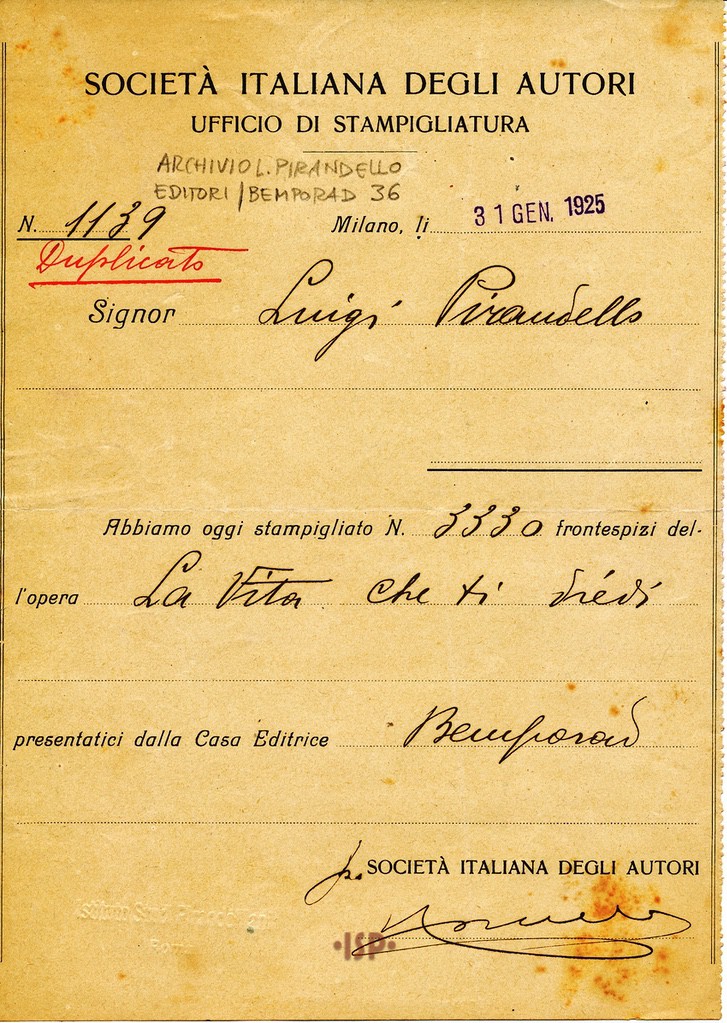 SOCIETÀ ITALIANA DEGLI AUTORI
UFFICIO DI STAMPIGLIATURA
ARCHIVIO L. PIRANDELLO
EDITORI / BEMPORAD 36
N. 1139 Milano, li 31 GEN. 1925
Duplicato
Signor Luigi Pirandello
Abbiamo oggi stampigliato N. 3330 frontespizi del-
l'opera La Vita che ti diédi
presentatici dalla Casa Editrice Bemporad
p. SOCIETÀ ITALIANA DEGLI AUTORI
·ISP·
Roma